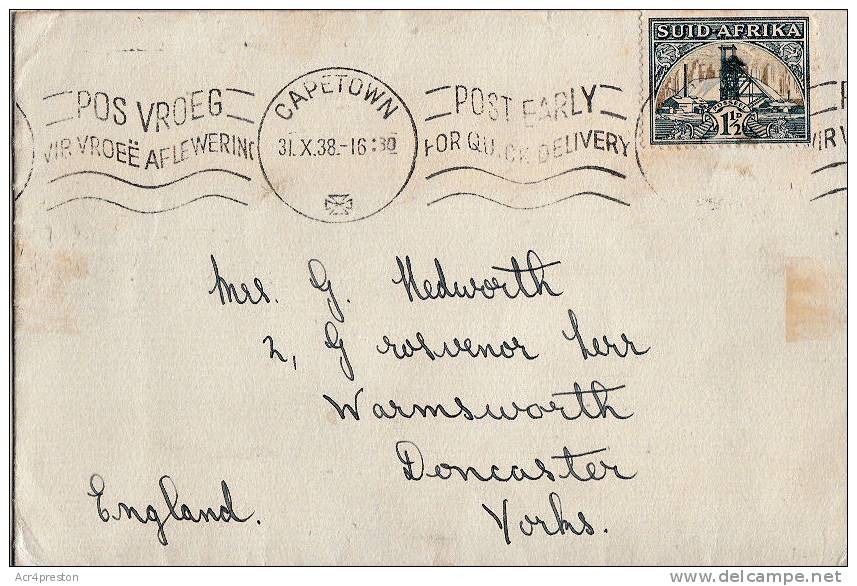 SUID-AFRIKA
POSSEEL
1½D
POS VROEG
VIR VROEË AFLEWERING
CAPETOWN
31.X.38.-16:30
POST EARLY
FOR QUICK DELIVERY
P
VIR V
Mrs. G. Medworth
2, Grosvenor Terr
Warmsworth
Doncaster
Yorks.
England.
Acr4preston
delcampe.net